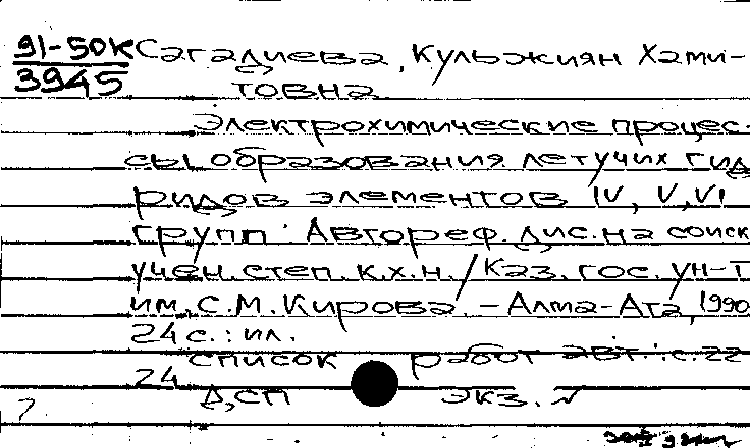 91-50К Сагадиева, Кульжиян Хами-
3945 товна
Электрохимические процес-
сы образования летучих гид
ридов элементов IV, V, VI
групп: Автореф. дис. на соиск
учен. степ. к.х.н. / Каз. гос. ун-т
им. С.М. Кирова. - Алма-Ата, 1990
24 с.: ил.
список работ авт.: с. 22
24
Д,СП экз. N